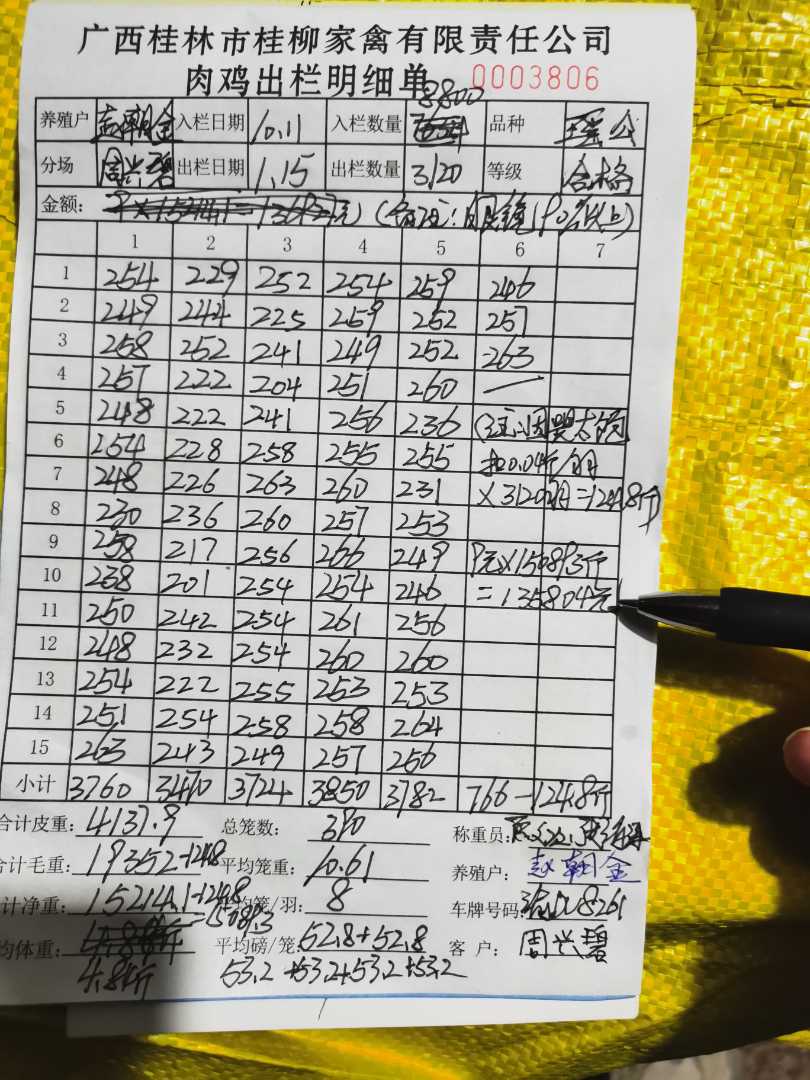 广西桂林市桂柳家禽有限责任公司
肉鸡出栏明细单 0003806
8800
养殖户 赵朝金 入栏日期 10.11 入栏数量 品种
分场 周兴碧 出栏日期 1.15 出栏数量 3120 等级 合格
金额:
1 2 3 4 5 6 7
1 254 229 252 254 259 246
2 249 244 225 259 252 257
3 258 252 241 249 252 263
4 257 222 204 251 260 —
5 248 222 241 256 236
6 254 228 258 255 255 扣0.04斤/羽
7 248 226 263 260 231 ×3120羽=124.8斤)
8 230 236 260 257 253
9 258 217 256 266 249 9元×15089.3斤
10 238 201 254 254 246 =135804元
11 250 242 254 261 256
12 248 232 254 260 260
13 254 222 255 253 253
14 251 254 258 258 264
15 263 243 249 257 256
小计 3760 3470 3724 3850 3782 766-124.8斤
合计皮重: 4137.9 总笼数: 390 称重员:
合计毛重: 19352-124.8 平均笼重: 10.61 养殖户: 赵朝金
计净重: 15214.1-124.8 平均笼/羽: 8 车牌号码:
=15089.3
均体重: 平均磅/笼: 52.8+52.8 客户: 周兴碧
4.84斤 53.2+53.2+53.2+53.2